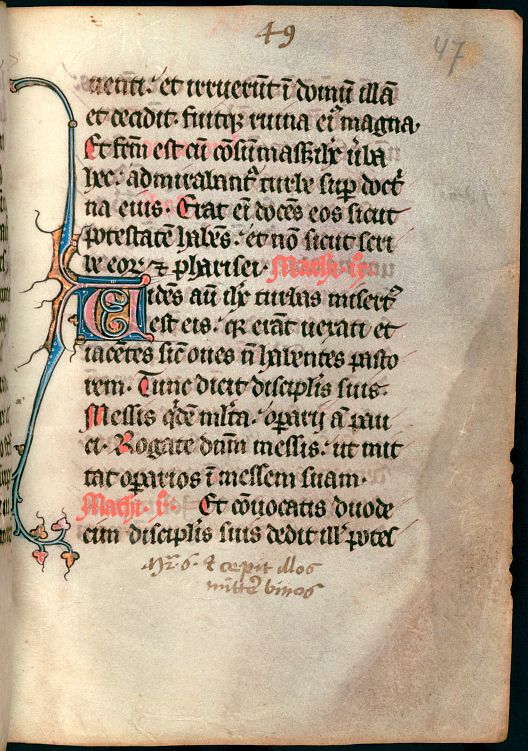 49
47
uenti. et irruerūt ī domū illā
et cecidit. fuitqȝ ruina eiꝰ magna.
Et fc̄m est cū cōsūmasȝ ih̄c ūba
hec. admirabantᷣ turbe suꝑ doctͥ
na eius. Erat eī docēs eos sicut
potestatē habēs. et nō sicut scri
be eoꝝ ⁊ pharisei.
Uidēs aū ih̄c turbas misertꝰ
est eis. qꝛ erāt uexati et
iacētes sic̄ oues n̄ habentes pasto
rem. Tunc dicit discipl̓is suis.
Messis qͥdē ml̓ta. oꝑarij ā pau
ci. Rogate dn̄m messis. ut mit
tat oꝑarios ī messem suam.
Et cōuocatis duode
cim discipl̓is suis dedit ill̓ potes
Mr. 6. & cepit illos
mittere binos